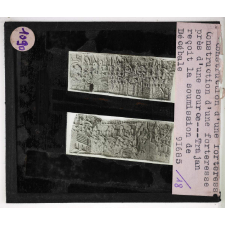 Construction d'une forteresse
près d'une source--Trajan
reçoit la soumission de
Décébale
91685
18
1090